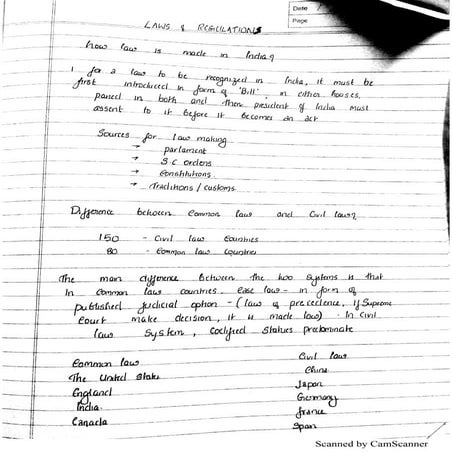 Date
Page
LAWS & REGULATIONS
How law is made in India?
1 for a law to be recognized in India, it must be
first introduced in form of 'Bill', in either houses,
passed in both and then president of India must
assent to it before it becomes an act
Sources for law making
→ parlament
→ S.C orders
→ Constitutions
→ Traditions / customs
Difference between Common law and Civil law?
150 - Civil law Countries
80 - Common law Countries
The main difference between the two systems is that
In Common law countries, case law - in form of
published judicial option - (law of precedence, if Supreme
Court make decision, it is made law). In Civil
law System, Codified Statues predominate
Common law
Civil law
The United State
China
England
Japan
India
Germany
Canada
france
Spain
Scanned by CamScanner